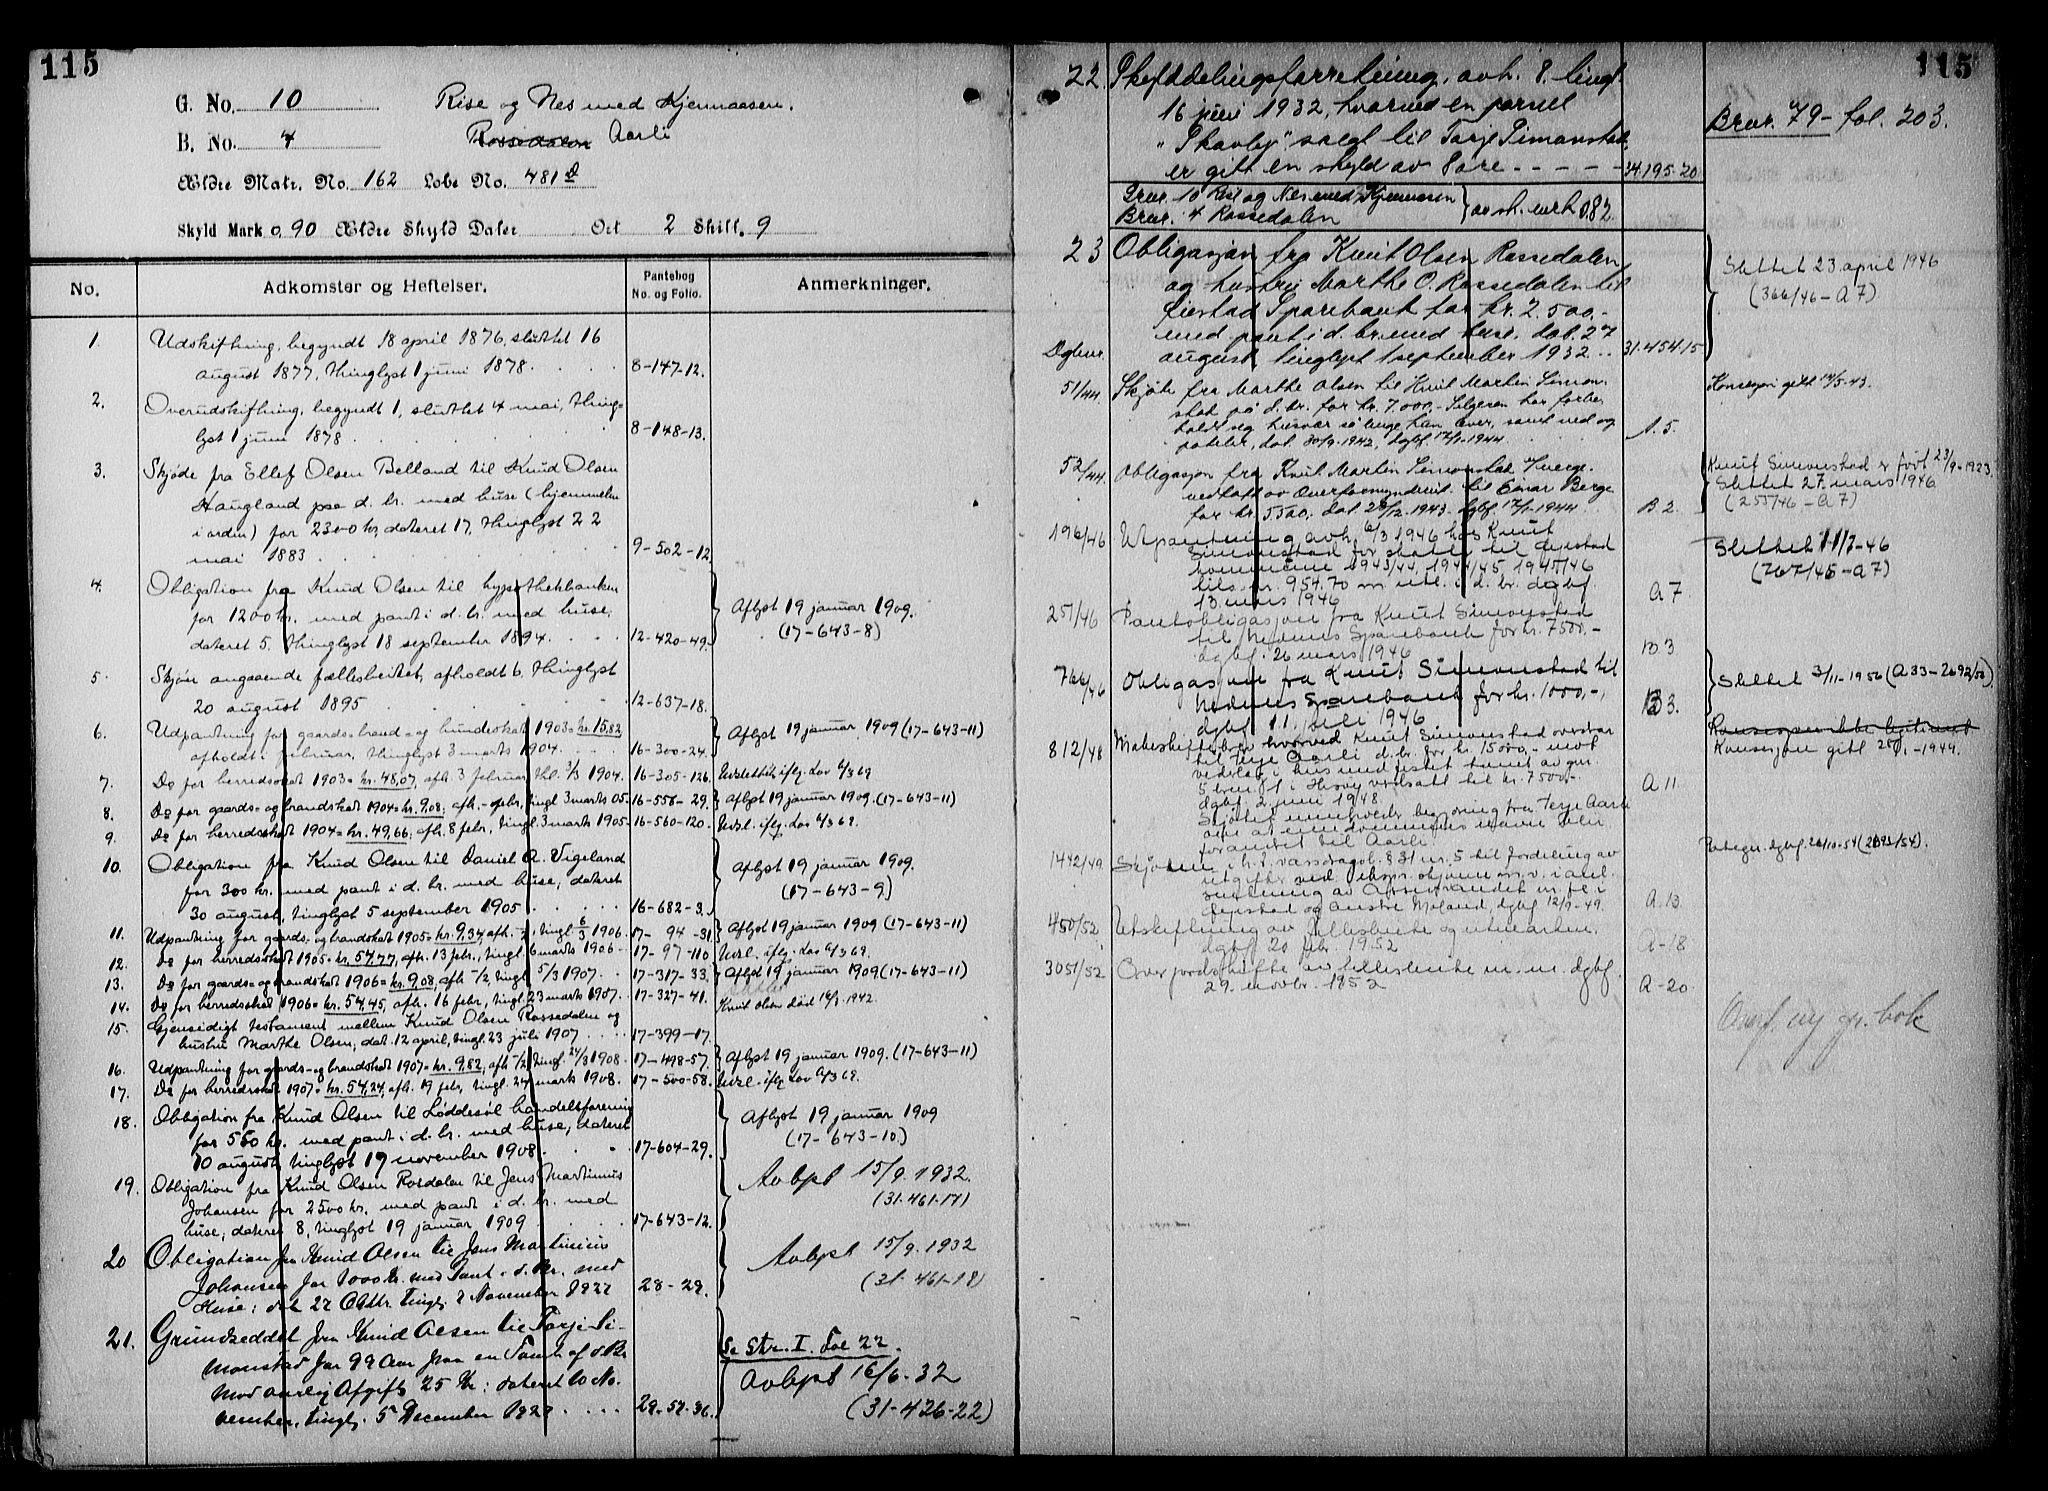 115
G. No. 10 Rise og Nes med Kjennaasen.
B. No. 4 Rossedalen Aarli
Ældre Matr. No. 162 Løbe No. 481 d
Skyld Mark 0,90 Ældre Skyld Daler Ort 2 Skill. 9
No. Adkomster og Heftelser. Pantebog No. og Folio. Anmerkninger.
1. Udskiftning, begyndt 18 april 1876, sluttet 16
august 1877, thinglyst 1 juni 1878. 8-147-12.
2. Overudskiftning, begyndt 1, sluttet 4 mai, thing-
lyst 1 juni 1878 8-148-13.
3. Skjøde fra Ellef Olsen Belland til Knud Olsen
Haugland paa d. br. med huse (hjemmelen
i orden) for 2300 kr, dateret 17, thinglyst 22
mai 1883 9-502-12
4. Obligation fra Knud Olsen til hypothekbanken
for 1200 kr. med pant i d. br. med huse,
dateret 5, thinglyst 18 september 1894. 12-420-49.
Aflyst 19 januar 1909.
(17-643-8)
5. Skjøn angaaende fællesbeitet, afholdt 6, thinglyst
20 august 1895 12-637-18.
6. Udpantning for gaards- brand- og hundeskat 1903 = kr. 15,82
afholdt. februar, thinglyst 3 marts 1904 16-300-24.
Aflyst 19 januar 1909 (17-643-11)
7. Do for herredsskat 1903 = kr. 48,07, afh. 3 februar, thl. 3/3 1904. 16-305-126.
8. Do for gaards- og brandskat 1904 = kr. 9,08; afh. - febr., tingl 3 marts 05. 16-558-29. Aflyst 19 januar 1909. (17-643-11)
9. Do for herredsskat 1904 = kr. 49,66; afh. 8 febr., tingl. 3 marts 1905 - 16-560-120.
10. Obligation fra Knud Olsen til Daniel A. Vigeland
for 300 kr. med pant i d. br. med huse, dateret
30 august, tinglyst 5 september 1905 16-682-3.
Aflyst 19 januar 1909.
(17-643-9)
11. Udpantning for gaards- og brandskat 1905 = kr. 9,34, afh. -/2, tingl 6/3 1906. 17-94-31. Aflyst 19 januar 1909 (17-643-11)
12. Do for herredsskat 1905 = kr. 54,77, afh. 13 febr., tingl. 6 marts 1906 - 17-97-110
13. Do for gaards- og brandskat 1906 = kr. 9,08, afh -/2, tingl. 5/3 1907. 17-317-33. Aflyst 19 januar 1909 (17-643-11)
14. Do for herredsskat 1906 = kr. 54,45, afh. 16 febr., tingl. 23 marts 1907. 17-327-41. Knut Olsen død 1942.
15. Gjensidigt testament mellem Knud Olsen Rossedalen og
hustru Marthe Olsen, dat. 12 april, tingl. 23 juli 1907 17-399-17.
16. Udpantning for gaards- og brandskat 1907 = kr. 9,82, afh -/2, tingl. 24/3 1908. 17-498-57. Aflyst 19 januar 1909. (17-643-11)
17. Do for herredsskat 1907 = kr. 54,24, afh. 19 febr., tingl. 24 marts 1908. 17-500-58.
18. Obligation fra Knud Olsen til Løddesøl handelsforening
for 550 kr. med pant i d. br. med huse, dateret
10 august, tinglyst 17 november 1908. 17-604-29.
Aflyst 19 januar 1909
(17-643-10)
19. Obligation fra Knud Olsen Rosdalen til Jens Martinius
Johansen for 2500 kr. med pant i d. br. med
huse, dateret 8, tinglyst 19 januar 1909 17-643-12.
Avlyst 15/9. 1932.
(31-461-17)
20 Obligation fra Knud Olsen til Jens Martinius
Johansen for 1000 Kr. med Pant i d. Br. med
Huse; dat 22 Obtbr. tingl. 2 November 1922 28-29.
Avlyst 15/9. 1932
(31-461-18)
21. Grundseddel fra Knud Olsen til Tarje Si-
monstad for 99 Aar paa en Tomt af d. Br
mod aarlig Afgift 25 Kr; dateret 10 No-
vember, tingl. 5 December 1929 29-57-36.
Se Str. I. Fol 22.
Avlyst 16/6. 32
(31-426-22)
115
22. Skylddelingsforretning, avh. 8. tingl.
16 juni 1932, hvorved en parsel
"Skovly" solgt til Tarje Simonstad,
er gitt en skyld av 8 øre - - - - 34.195.20
Brnr. 79 - fol. 203.
Gnr. 10 Rise og Nes med Kjennaasen
Brnr. 4 Rossedalen } av sk. mrk 0.82.
23 Obligasjon fra Knut Olsen Rossedalen
og hustru Marthe O. Rossedalen til
Øiestad Sparebank for kr. 2 500.-
med pant i d. br. med huse, dat. 27
august tinglyst 1 september 1932 .. 31.454.15
Slettet 23. april 1946
(366/46 - A 7)
Dgbnr.
51/44 Skjøte fra Marthe Olsen til Knut Martin Simon-
stad på d. br. for kr. 7.000.- Selgeren har forbe-
holdt seg husvær så lenge han lever, samt ved og
poteter, dat. 30/9-1942, dgbf. 17/1-1944. A. 5.
Konsesjon gitt 14/5-43.
52/44 Obligasjon fra Knut Martin Simonstad
vedtatt av Overformynderiet til Einar Berge
for kr. 5500.- dat. 29/12-1943. dgbf. 17/1-1944 B 2.
Knut Simonstad er født 23/9-1923.
Slettet 27. mars 1946
(255/46 - A 7)
196/46 Utpantning avh. 6/3 1946 hos Knut
Simonstad for skatt til Øyestad
kommune 1943/44, 1944/45, 1945/46
tils. kr. 954.70 m. utl. i d. br. dgbf.
13. mars 1946 A 7
Slettet 11/7-46
(767/46 - A 7)
257/46 Pantobligasjon fra Knut Simonstad
til Nedenes Sparebank for kr. 7500.-
dgbf. 26 mars 1946 B 3
766/46 Obligasjon fra Knut Simonstad til
Nedenes Sparebank for kr. 1000.-,
dgbf. 11. juli 1946 B 3.
Slettet 3/11-1956 (A 33-2692/56)
812/48 Makeskiftebrev hvorved Knut Simonstad overdrar
til Terje Aarli d. br. for kr. 15000.- mot
vederlag i hus med festet tomt av gnr.
5 brnr. 1 i Hisøy verdsatt til kr. 7500.-
dgbf. 2 juni 1948 A 11.
Konsesjon ikke legitimert
Konsesjon gitt 1-1949.
Skjøtet inneholder begjæring fra Terje Aarli
om at eiendommens navn blir
forandret til Aarli.
1442/49 Skjønn i h. t. vassdragsl. § 31 nr. 5 til fordeling av
utgifter ved ekspr. skjønn m. v. i anl.
senkning av
Øyestad og Austre Moland, dgbf. 12/9-49. A. 13.
450/52 Utskiftning av fellesbeite og utmarken.
dgbf. 20 febr. 1952 A-18
3051/52 Over jordskifte av fellesbeite m. m. dgbf.
29. novbr. 1952 A-20.
Overf. ny gr. bok